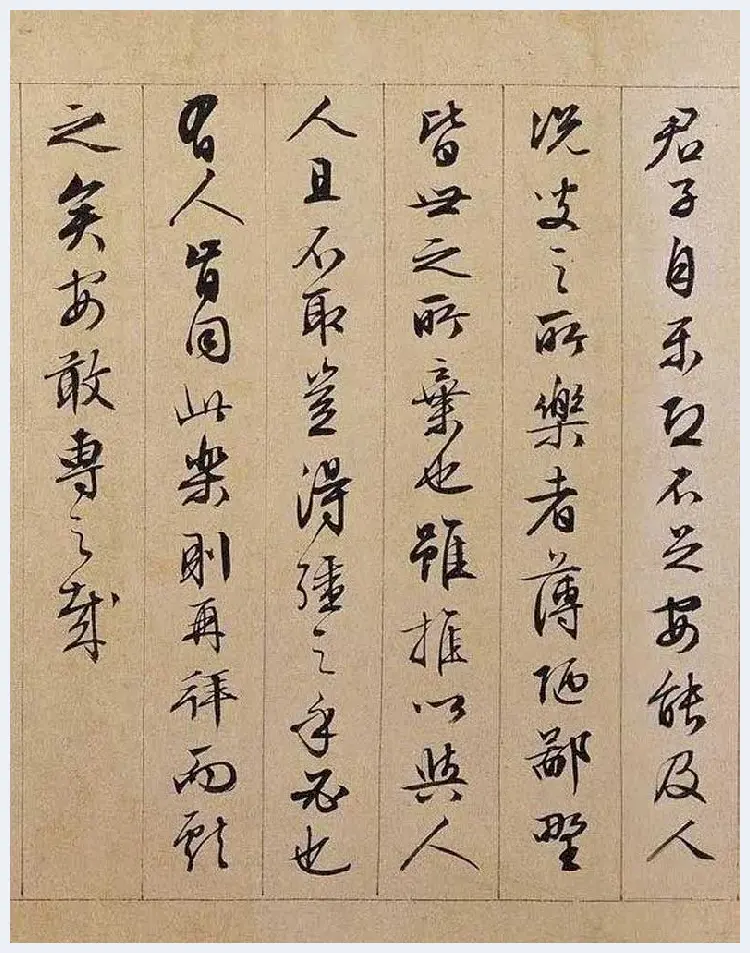 君子自樂恐不足安能及人
況叟之所樂者薄陋鄙野
皆世之所棄也雖推以與人
人且不取豈得彊之乎必也
有人肯同此樂則再拜而獻
之矣安敢專之哉